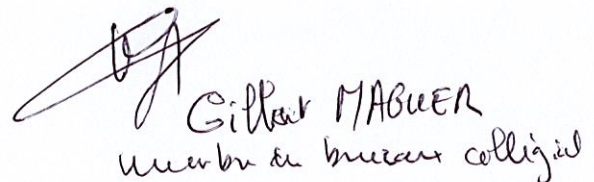 Gilbert MAGUER
membre du bureau collégial